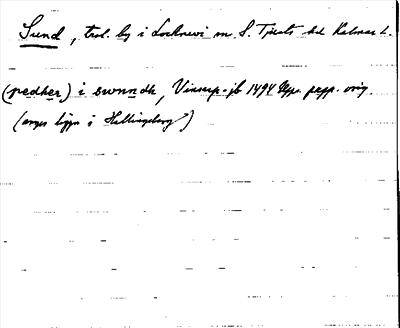 Sund, trol. by i Locknevi sn S. Tjusts hd Kalmar l.
(pedher) i swnndh, Vinsarp-jb 1494 Upps. papp. orig.
(anges ligga i Hallingeberg)